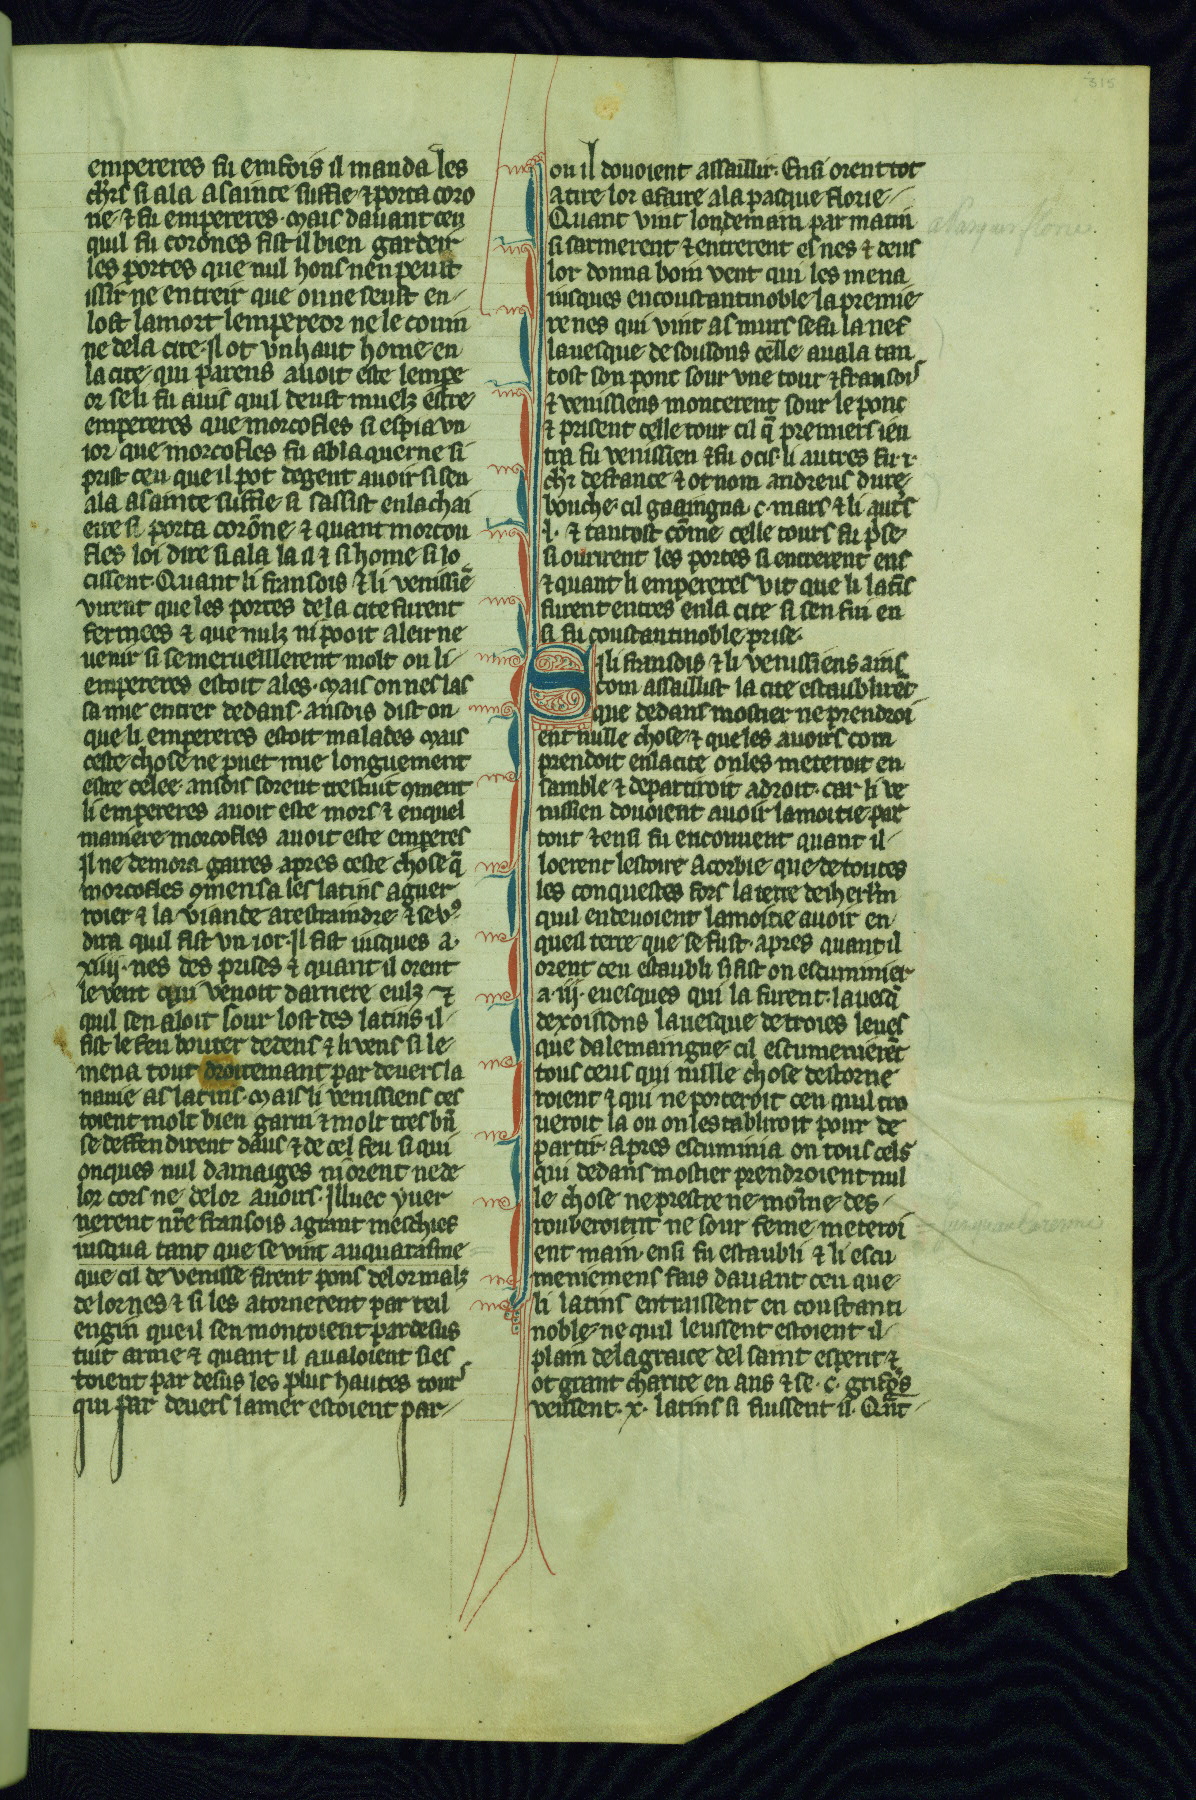 empereres fu emfois il manda les
chrs si ala a sainte suffie ⁊ porta coro
ne ⁊ fu empereres. mais dauant ceu
quil fu corones fist il bien gardeir
les portes que nul hons nen peuit
issir ne entreir que on ne seust en
lost la mort lempereor ne le couin
ne de la cite. Il ot vn haut home en
la cite qui parens auoit este lempe
or se li fu auis quil deust muelz estre
empereres que morcofles si espia vn
ior que morcofles fu abla querne si
prist ceu que il pot de gent auoir si sen
ala a sainte suffie si sassist en la chai
ere si porta corone ⁊ quant morcou
fles loi dire si ala la si ⁊ si home si lo
cissent. Quant li fransois ⁊ li venissie
virent que les portes de la cite furent
fermees ⁊ que nulz ni pooit aleir ne
uenir si se merueilllerent molt ou li
empereres estoit ales. mais on nes las
sa mie entrer dedans. ansois dist on
que li empereres estoit malades mais
ceste chose ne puet mie longuement
estre celee. ansois sorent trestuit 9ment
li empereres auoit este mors ⁊ en quel
maniere morcofles auoit este emperes
Il ne demora gaires apres ceste chose q̄
morcofles 9mensa les latins aguer
roier ⁊ la viande a restraindre ⁊ se v9
dira quil fist vn ior. Il fist iusques a.
xiiij. nes des prises ⁊ quant il orent
le vent qui venoit darriere eulz ⁊
quil sen aloit sour lost des latins il
fist le feu bouter dedens ⁊ li vens si le
mena tout droitemant par deuers la
nauie as latins. mais li venissiens ces
toient molt bien garni ⁊ molt tres bn̄
se deffendirent daus ⁊ de cel feu si qui
onques nul damaiges ni orent ne de
lor cors ne de lor auoirs. Illuec yuer
nerent nr̄e fransois a grant meschief
iusqua tant que se vint au quarasme
que cil de venisse firent pons de lor malz
de lor nes ⁊ si les atornerent par teil
engin que il sen montoient par desus
tuit arme ⁊ quant il aualoient si es
toient par desus les plus hautes tours
qui par deuers la mer estoient par
ou il douoient assaillir. Ensi orent tot
atire lor afaire a la pasque florie
Quant vint londemain par matin
si sarmerent ⁊ entrerent es nes ⁊ deus
lor donna boin vent qui les mena
iusques en coustantinoble la premie
re nes qui vint as murs se fu la nef
lauesque de soissons celle auala tan
tost son pont sour vne tour ⁊ fransois
⁊ venissiens monterent sour le pont
⁊ prisent celle tour cil q̄ premiers ien
tra fu venissien ⁊ fu ocis li autres fu .i.
chr de france ⁊ ot nom andreus dure
bouche. cil gaaingna .c. mars ⁊ li autrs
.l. ⁊ tantost come celle tours fu p̄se
si ourirent les portes si entrerent ens
⁊ quant li empereres vit que li latis
furent entres en la cite si sen fui en
si fu coustantinoble prise.
Si li fransois ⁊ li venissiens ains
com assaillist la cite establiret
que dedans mostier ne prendroi
ent nulle chose ⁊ que les auoirs com
prendoit en la cite on les meteroit en
samble ⁊ departiroit a droit. car li ve
nissien douoient auoir la moitie par
tout ⁊ ensi fu en conuent quant il
loerent lestoire a corbie que de toutes
les conquestes fors la terre de iherlm
quil en deuoient la moitie auoir en
queil terre que se fust. apres quant il
orent ceu establi si fist on escumnier
a .iij. euesques qui la furent. lauesq̄
de xoissons lauesque de troies leues
que dalemaingne. cil escumenieret
tous ceus qui nulle chose destorne
roient ⁊ qui ne porteroit ceu quil tro
ueroit la ou on lestabliroit pour de
partir. apres escuminia on tous cels
qui dedans mostier prendroient nul
le chose ne prestre ne moine des
rouberoient ne sour feme meteroi
ent main. ensi fu estaubli ⁊ li escu
meniemens fais dauant ceu que
li latins entraissent en coustanti
noble. ne quil leussent estoient il
plain de la graice del saint esperit ⁊
ot grant charite en aus ⁊ se .c. grifōs
veissent .x. latins si fuissent il. Qn̄t
315
a Pasques florie